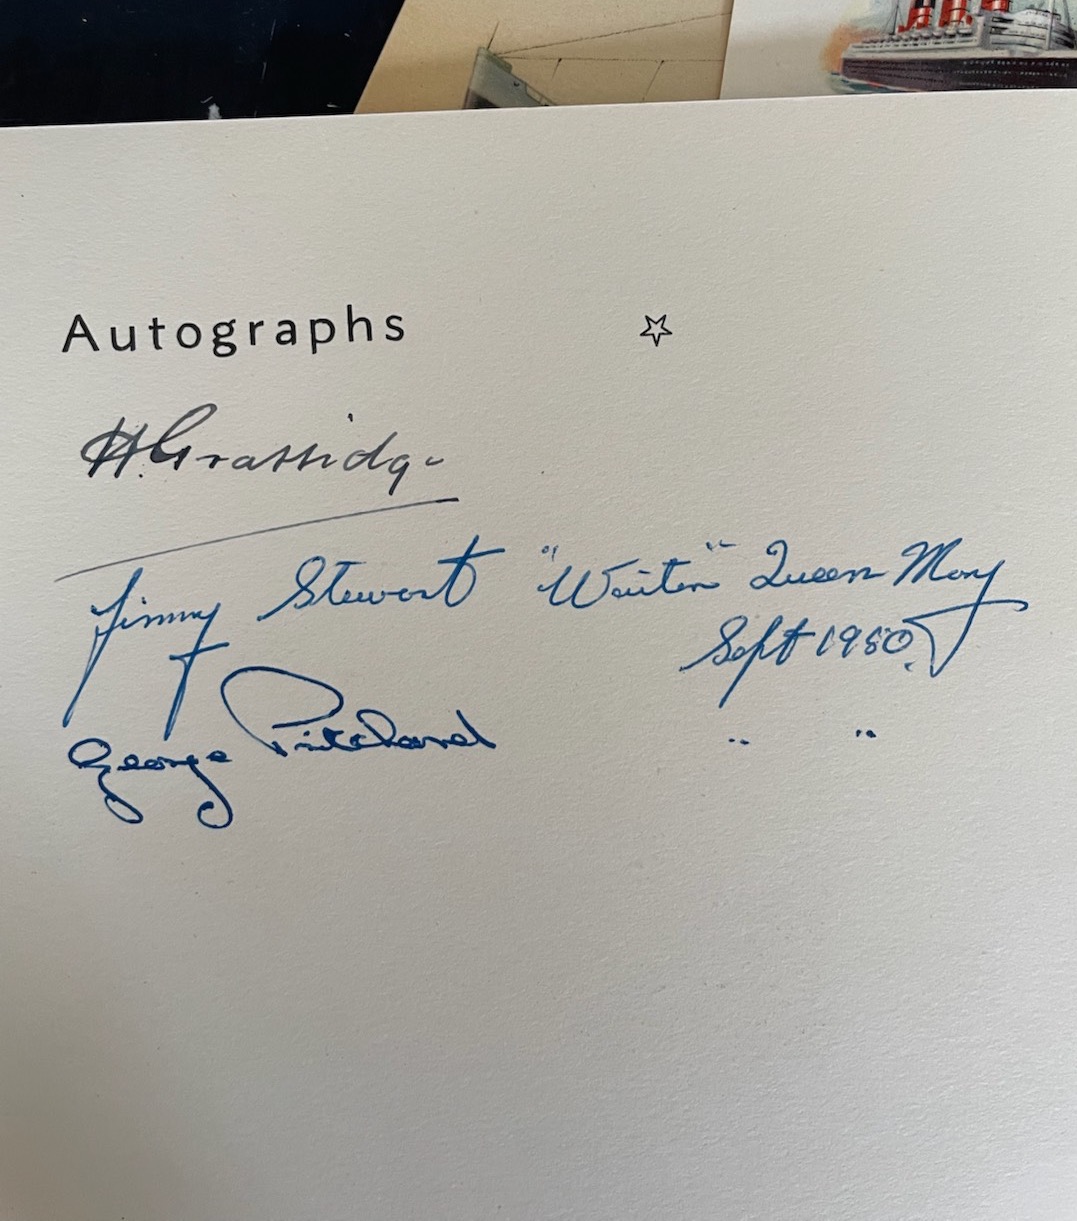 Autographs
H. Grattidge
Jimmy Stewart "Waiter" Queen Mary
Sept 1950.
George Pritchard " "